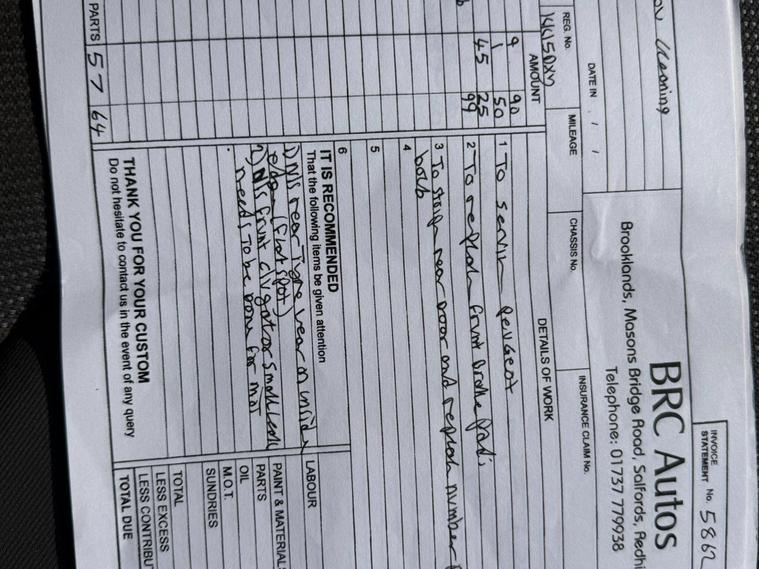 INVOICE
STATEMENT No. 5862
BRC Autos
Brooklands, Masons Bridge Road, Salfords, Redhi
Telephone: 01737 779938
DATE IN / /
REG. No.
MILEAGE
CHASSIS No.
INSURANCE CLAIM No.
AMOUNT
DETAILS OF WORK
9 90
1 50
45 25
99
1 To servin Peugeot
2 To replace front brake pads
3 To strip rear door and replace number
bolb
4
5
6
IT IS RECOMMENDED
That the following items be given attention
1) N/S rear Tyre wear on inside
edge (flat spot)
2) N/S front
needs To be done for mot
LABOUR
PAINT & MATERIAL
PARTS
OIL
M.O.T.
SUNDRIES
TOTAL
LESS EXCESS
LESS CONTRIBU
TOTAL DUE
PARTS 57 64
THANK YOU FOR YOUR CUSTOM
Do not hesitate to contact us in the event of any query